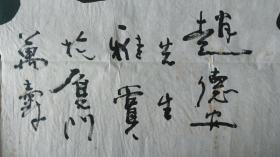 趙德安
先生
雅賞
於廈門
萬壽